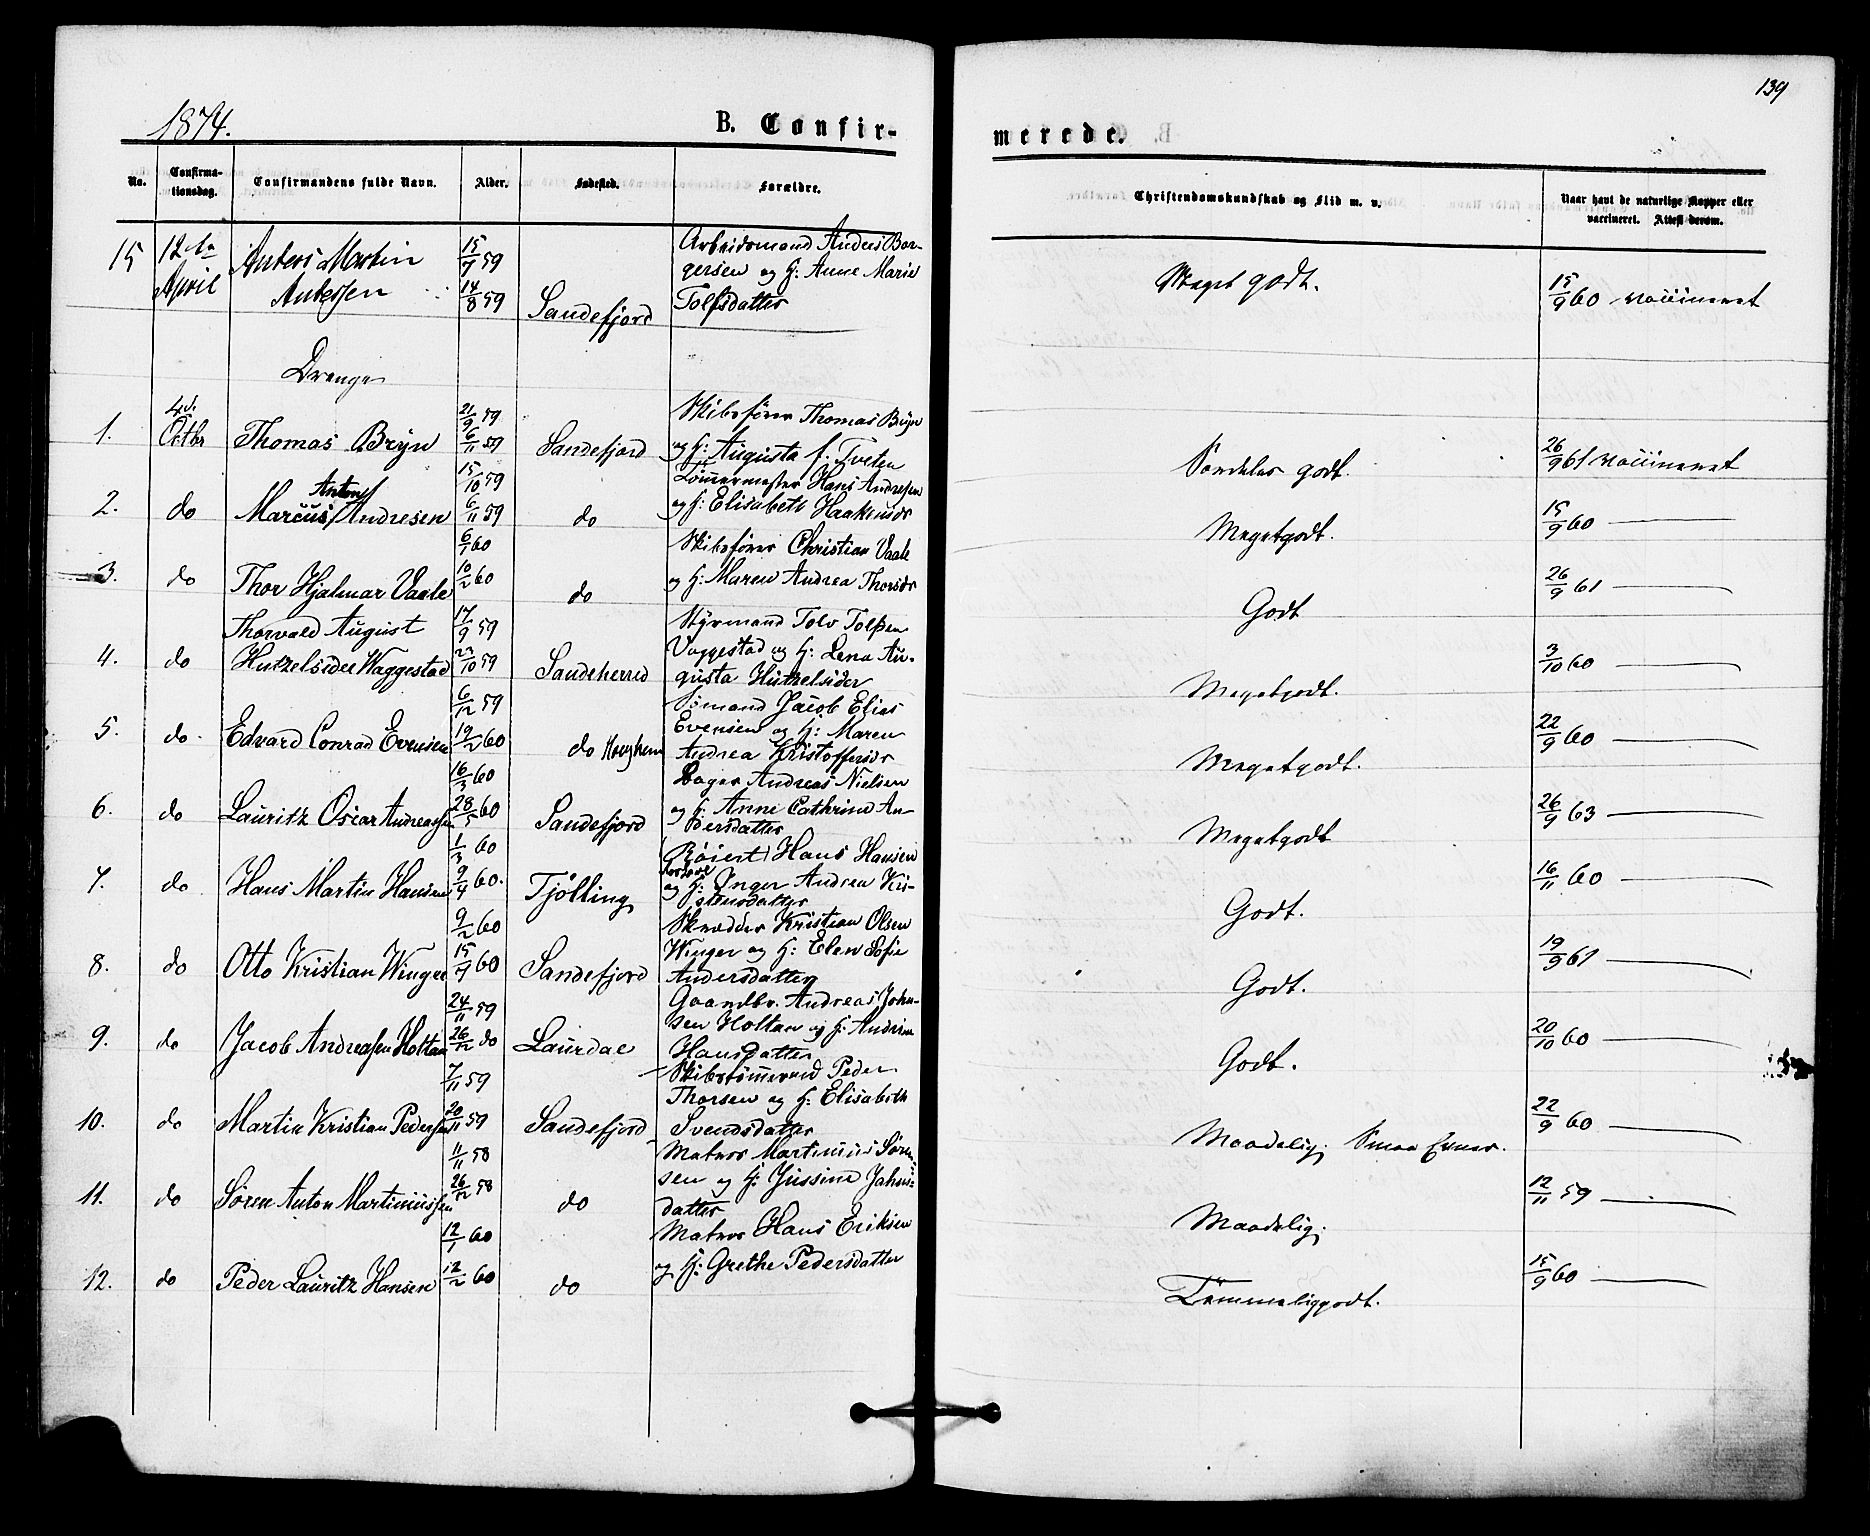 139
1874.
B. Confir-
merede.
No.
Confirma-
tionsdag.
Confirmandens fulde Navn.
Alder.
Fødested.
Forældre.
Christendomskundskab og Flid m. v.
Naar havt de naturlige Kopper eller
vaccineret. Attest derom.
15 12te Anders Martin 15/7 59 Arbeidsmand Anders Bor-
April Andersen 14/8 59 Sandefjord gersen og H: Anne Marie
Tolfsdatter Meget godt. 15/9 60 vaccineret
Drenge
1. 4d. Octbr Thomas Bryn 21/9 59 6/11 59 Sandefjord Skibsfører Thomas Bryn
og H: Augusta f. Tveten Særdeles godt. 26/9 61 vaccineret
2. do Marcus Anton Andresen 15/10 59 6/11 59 do Tømmermester Hans Andresen
og H: Elisabeth Haaknsdr Megetgodt. 15/9 60
3. do Thor Hjalmar Vaale 6/1 60 10/2 60 do Skibsfører Christian Vaale
og H: Maren Andrea Thorsdr Godt 26/9 61
4. do Thorvald August 17/9 59 Styrmand Tolv Tolfsen
Hutzelsider Waggestad 23/10 59 Sandeherred Vaggestad og H: Lena Au-
gusta Hutzelsider Megetgodt. 3/10 60
5. do. Edvard Conrad Evensen 6/12 59 19/2 60 do Haughem Sømand Jacob Elias
Evensen og H: Maren
Andrea Kristoffersdr Megetgodt. 22/9 60
6. do Lauritz Oscar Andreassen 16/3 60 28/5 60 Sandefjord Bager Andreas Nielsen
og H: Anne Cathrine An-
dersdatter Megetgodt 26/9 63
7. do Hans Martin Hansen 1/3 60 9/4 60. Tjølling Hans Hansen
og H: Inger Andrea Kri-
stensdatter Godt. 16/11 60
8. do Otto Kristian Winger 9/2 60 15/4 60 Sandefjord Skrædder Kristian Olsen
Winger og H: Elen Sofie
Andersdatter Godt. 19/9 61
9. do Jacob Andreasen Holtan 24/11 59 26/12 do Laurdal Gaardbr. Andreas Joha-
sen Holtan og H: Andrine
Hansdatter Godt. 20/10 60
10. do Martin Kristian Pedersen 7/11 59 20/11 59 Sandefjord Skibstømmermd Peder
Thorsen og H: Elisabeth
Svendsdatter Maadelig; Smaa Evner. 22/9 60
11. do Søren Anton Martiniussen 11/11 58 26/12 58 do Matros Martinius Søren-
sen og H: Jussine Jahns-
datter Maadelig; 12/11 59
12. do Peder Lauritz Hansen 12/1 60 12/2 60 do Matros Hans Eriksen
og H: Grethe Pedersdatter Temmeliggodt. 15/9 60